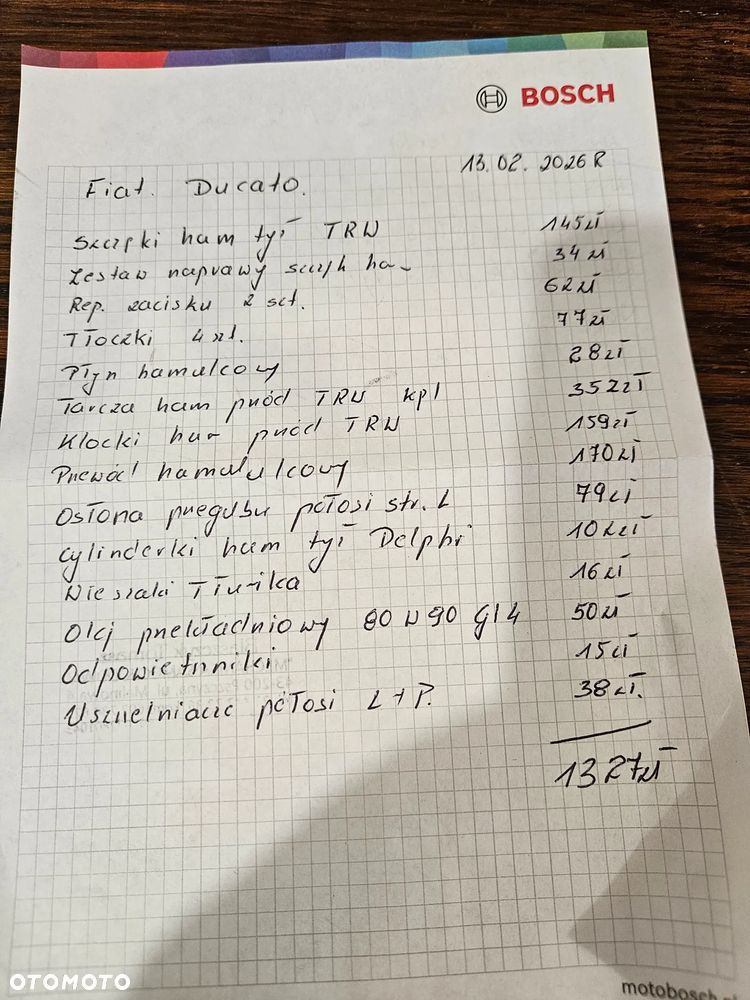 BOSCH
13.02.2026 R
Fiat. Ducato.
Szczęki ham tył TRW 145 zł
Zestaw naprawy szczęk ha 34 zł
Rep. zacisku 2 szt. 62 zł
Tłoczki 4 szt. 77 zł
Płyn hamulcowy 28 zł
Tarcza ham przód TRW kpl 352 zł
Klocki ham przód TRW 159 zł
Przewód hamulcowy 170 zł
Osłona przegubu półosi str. L 79 zł
Cylinderki ham tył Delphi 102 zł
Wieszaki Tłumika 16 zł
Olej przekładniowy 80W90 Gl4 50 zł
Odpowietrzniki 15 zł
Uszczelniacze półosi L+P. 38 zł.
1327 zł
OTOMOTO
motobosch